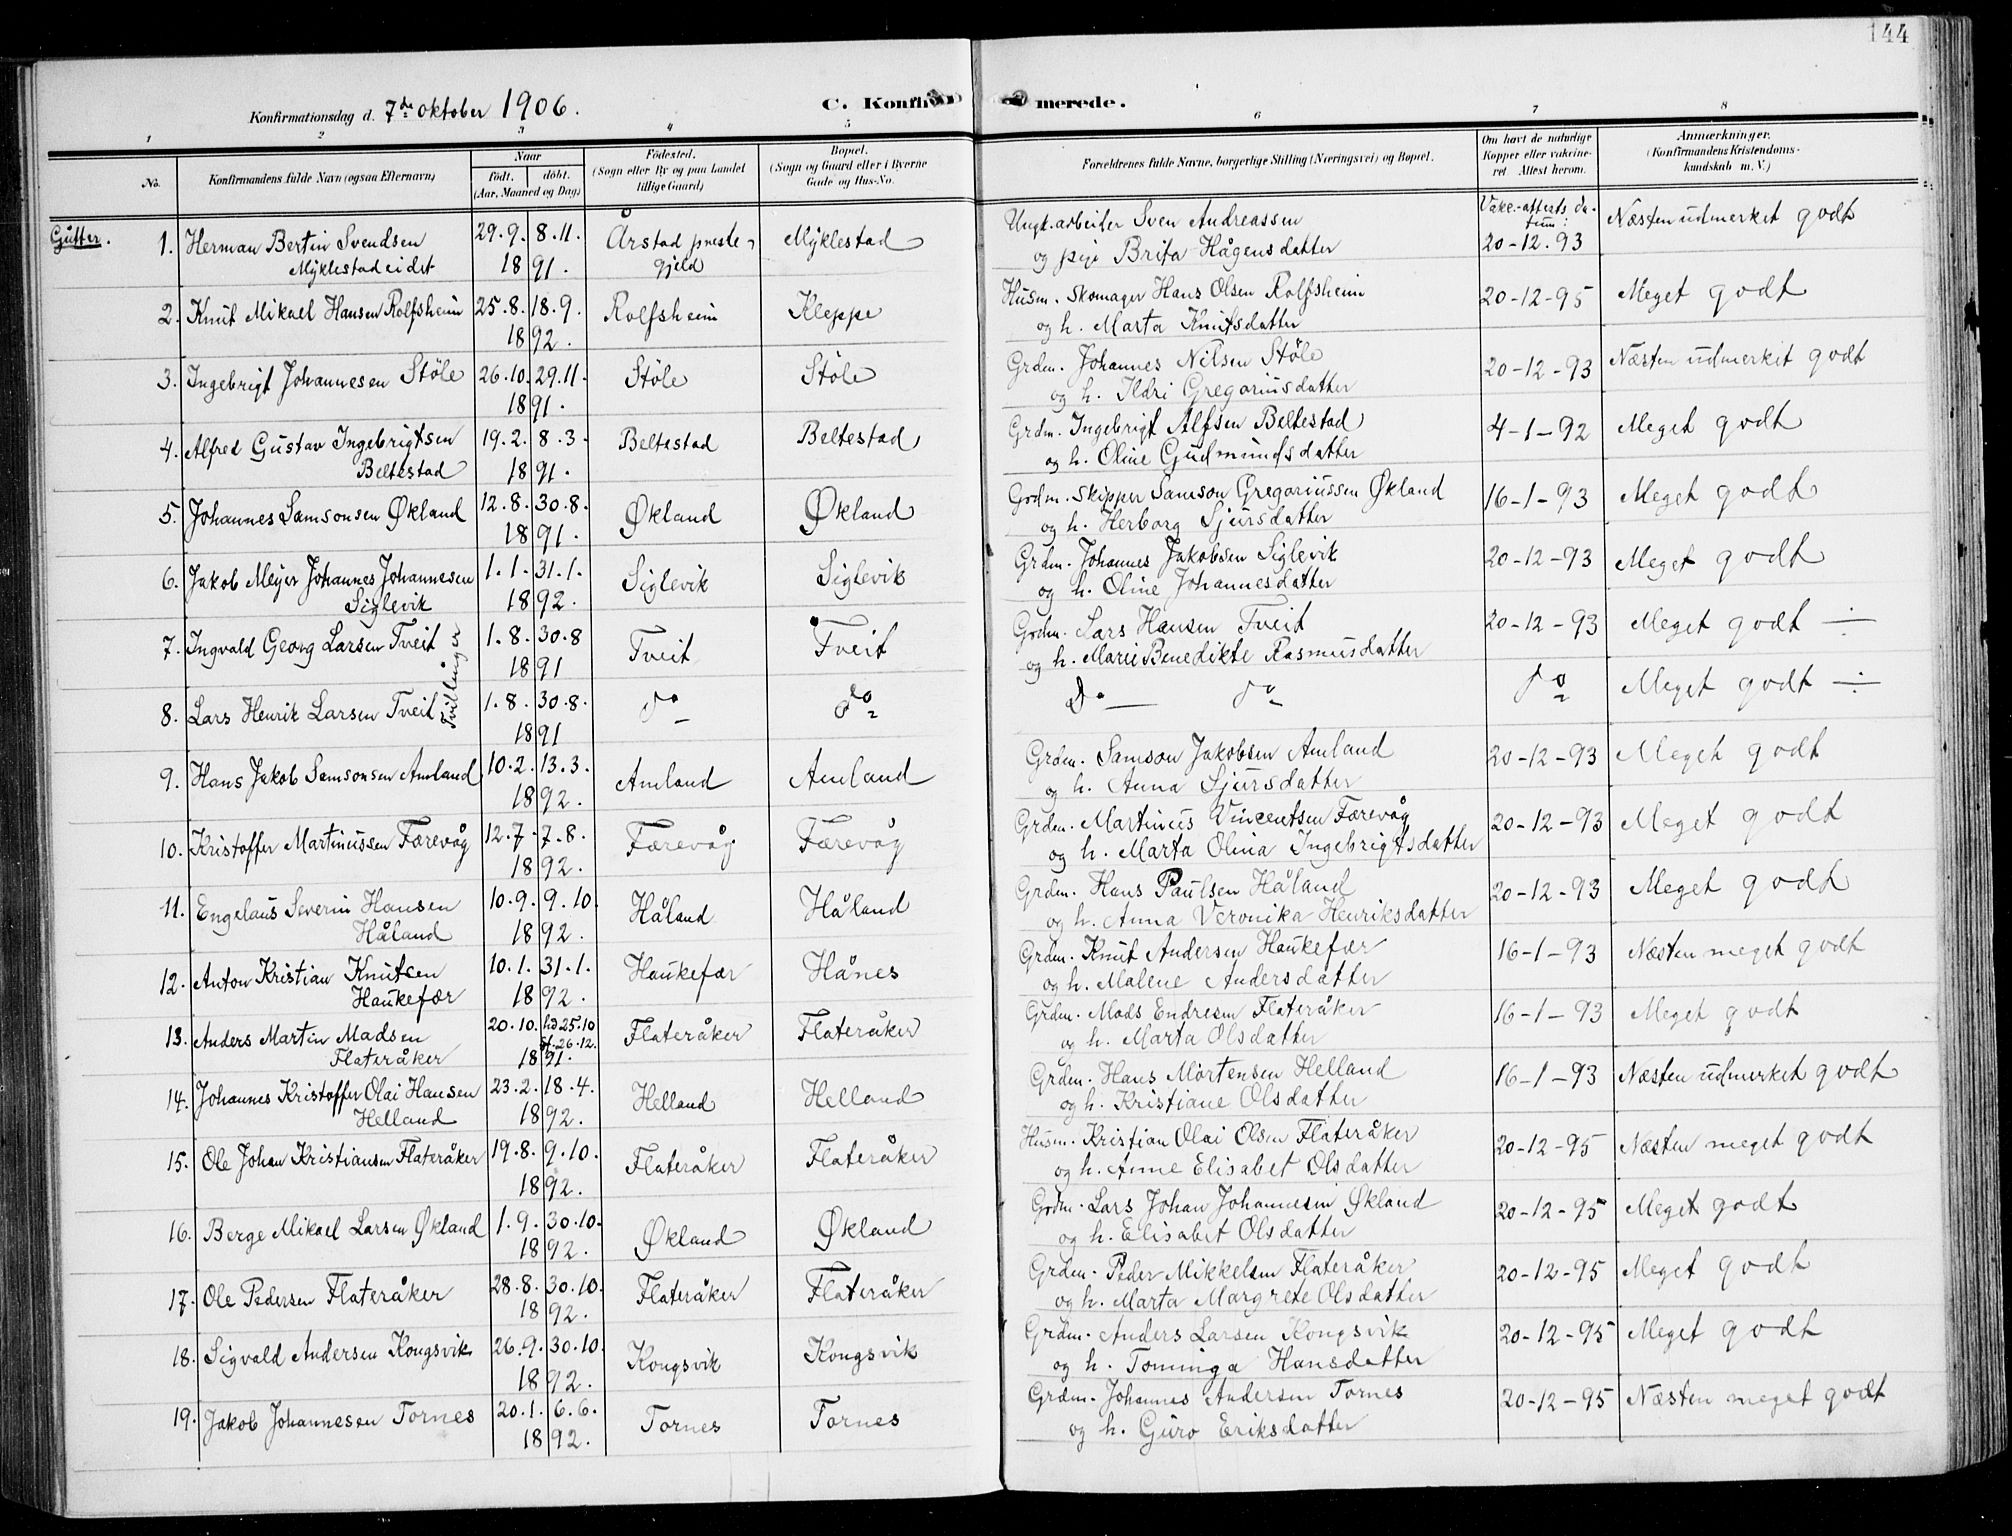 144
Konfirmationsdag d. 7de oktober 1906.
C. Konfir merede.
1 2 3 4 5 6 7 8
No. Konfirmandens fulde Navn (ogsaa Efternavn) Naar født. døbt. (Aar, Maaned og Dag) Fødested. (Sogn eller By og paa Landet tillige Gaard) Bopæl. (Sogn og Gaard eller i Byerne Gade og Hus-No. Forældrenes fulde Navne, borgerlige Stilling (Næringsvei) og Bopæl. Om havt de naturlige Kopper eller vakcineret. Attest herom. Anmærkninger. (Konfirmandens Kristendomskundskab m. V.)
Gutter. 1. Herman Bertin Svendsen 29.9. 8.11. Årstad preste- Myklestad Ungk. arbeider Sven Andreassen Vakc.-attests da- Næsten udmerket godt
Myklestadeidet 1891. gjeld og pige Brita Hågensdatter tum: 20-12-93
2. Knut Mikael Hansen Rolfsheim 25.8. 18.9. Rolfsheim Kleppe Husm. skomager Hans Olsen Rolfsheim 20-12-95 Meget godt
1892. og h. Marta Knutsdatter
3. Ingebrigt Johannesen Støle 26.10. 29.11. Støle Støle Grdm. Johannes Nilsen Støle 20-12-93 Næsten udmerket godt
1891. og h. Ildri Gregoriusdatter
4. Alfred Gustav Ingebrigtsen 19.2. 8.3. Beltestad Beltestad Grdm. Ingebrigt Alfsen Beltestad 4-1-92 Meget godt
Beltestad 1891. og h. Oline Gudmundsdatter
5. Johannes Samsonsen Økland 12.8. 30.8. Økland Økland Grdm. skipper Samson Gregoriussen Økland 16-1-93 Meget godt
1891. og h. Herborg Sjursdatter
6. Jakob Meyer Johannes Johannesen 1.1. 31.1. Siglevik Siglevik Grdm. Johannes Jakobsen Siglevik 20-12-93 Meget godt
Siglevik 1892. og h. Oline Johannesdatter
7. Ingvald Georg Larsen Tveit 1.8. 30.8 Tveit Tveit Grdm. Lars Hansen Tveit 20-12-93 Meget godt ÷
Tvillinger 1891 og h. Marie Benedikte Rasmusdatter
8. Lars Henrik Larsen Tveit 1.8. 30.8. do do Do do do Meget godt ÷
1891
9. Hans Jakob Samsonsen Amland 10.2. 13.3. Amland Amland Grdm. Samson Jakobsen Amland 20-12-93 Meget godt
1892. og h. Anna Sjursdatter
10. Kristoffer Martinussen Færevåg 12.7. 7.8. Færevåg Færevåg Grdm. Martinus Vincentsen Færevåg 20-12-93 Meget godt
1892. og h. Marta Olina Ingebrigtsdatter
11. Engelaus Severin Hansen 10.9. 9.10. Håland Håland Grdm. Hans Paulsen Håland 20-12-93 Meget godt
Håland 1892. og h. Anna Veronika Henriksdatter
12. Anton Kristian Knutsen 10.1. 31.1. Haukefær Hånes Grdm. Knut Andersen Haukefær 16-1-93 Næsten meget godt
Haukefær 1892. og h. Malene Andersdatter
13. Anders Martin Madsen 20.10. hd 25.10 Flateråker Flateråker Grdm. Mads Endresen Flateråker 16-1-93 Meget godt
Flateråker st. 26.12. 1891. og h. Marta Olsdatter
14. Johannes Kristoffer Olai Hansen 23.2. 18.4. Helland Helland Grdm. Hans Mortensen Helland 16-1-93 Næsten udmerket godt
Helland 1892. og h. Kristiane Olsdatter
15. Ole Johan Kristiansen Flateråker 19.8. 9.10. Flateråker Flateråker Husm. Kristian Olai Olsen Flateråker 20-12-95 Næsten meget godt
1892. og h. Anne Elisabet Olsdatter
16. Berge Mikael Larsen Økland 1.9. 30.10. Økland Økland Grdm. Lars Johan Johannesen Økland 20-12-95 Meget godt
1892. og h. Elisabet Olsdatter
17. Ole Pedersen Flateråker 28.8. 30.10. Flateråker Flateråker Grdm. Peder Mikkelsen Flateråker 20-12-95 Meget godt
1892. og h. Marta Margrete Olsdatter
18. Sigvald Andersen Kongsvik 26.9. 30.10. Kongsvik Kongsvik Grdm. Anders Larsen Kongsvik 20-12-95 Meget godt
1892. og h. Tominga Hansdatter
19. Jakob Johannesen Tornes 20.1. 6.6. Tornes Tornes Grdm. Johannes Andersen Tornes 20-12-95 Næsten meget godt
1892. og h. Guro Eriksdatter